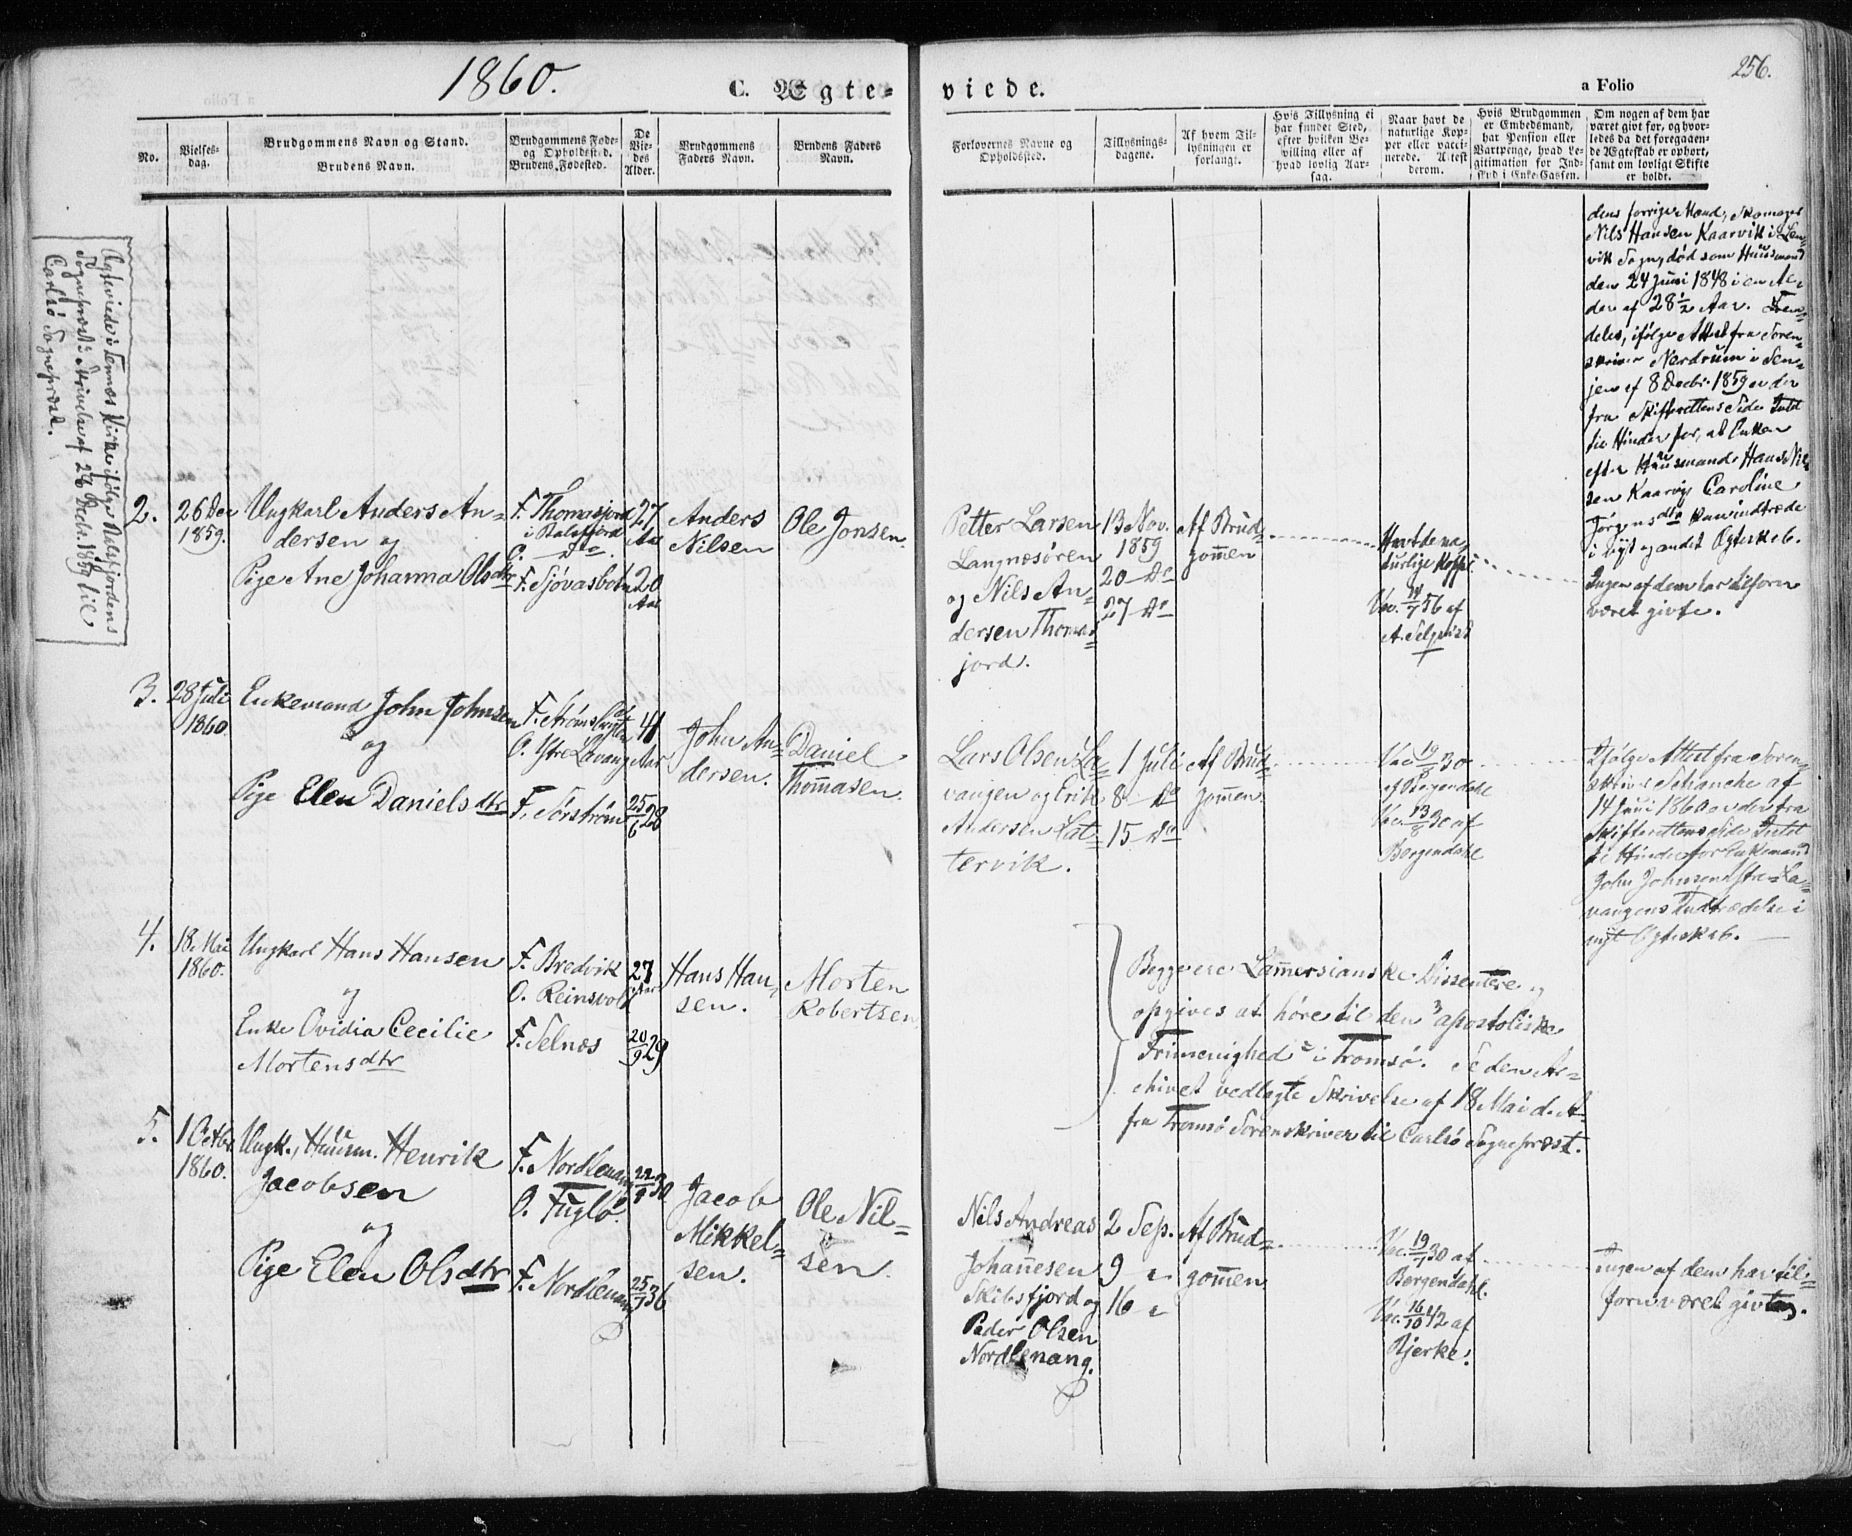 1860.
C. Ægte-
viede.
a Folio
256.
No.
Vielses-
dag.
Brudgommens Navn og Stand.
Brudens Navn.
Brudgommens Føde-
og Opholdsted.
Brudens Fødested.
De
Vie-
des
Alder.
Brudgommens
Faders Navn.
Brudens Faders
Navn.
Forlovernes Navne og
Opholdsted.
Tillysnings-
dagene.
Af hvem Til-
lysningen er
forlangt.
Hvis Tillysning ei
har fundet Sted,
efter hvilken Be-
villing eller af
hvad lovlig Aar-
sag.
Naar havt de
naturlige Kop-
per eller vacci-
nerede. Attest
derom.
Hvis Brudgommen
er Embedsmand,
har Pension eller
Vartpenge, hvad Le-
gitimation for Ind-
skud i Enke-Cassen.
Om nogen af dem har
været givt før, og hvor-
ledes da det foregaaen-
de Ægteskab er ophørt,
samt om lovligt Skifte
er holdt.
dens forrige Mand, Skomager
Nils Hansen Kaarvik i Len-
vik Sogn, død som Huusmand
den 24 Juni 1848 i en Al-
der af 28½ Aar. Frem-
deles, ifølge Attest fra Soren-
skriver Nerdrum i Sen-
jen af 8 Decbr. 1859 er der
fra Skifterettens Side Intet
til Hinder for, at Enken
efter Huusmand Hans Nil-
sen Kaarvig Caroline
Jørgensdtr kan indtræde
i nyt og andet Ægteskab.
Ægteviede i Tennes Kirke ifølge Balsfjordens
Sognepræsts Skrivelse af 28 Decbr. 1859 til
Carlsø Sognepræst.
2.
26 Dec
1859.
Ungkarl Anders An-
dersen og
Pige Ane Johanna Olsdtr
F. Thomasjord
i Balsfjord
O. do
F. Sjøvasbotn
27
Aar
20
Aar
Anders
Nilsen
Ole Jonsen.
Petter Larsen
Langnæsøren
og Nils An-
dersen Thomas-
jord.
13 Nov.
1859
20 - Do
27 - Do
Af Brud-
gommen
Havt de na-
turlige Kopper
Vac. 14/7 56 af
A. Selqvist
Ingen af dem har tilforn
været givte.
3.
28 Juli
1860.
Enkemand John Johnsen
og
Pige Elen Danielsdtr
F. Strømslægten
O. Ytre Lavang
F. Sørstrøm
41
Aar
25/6 28
John An-
dersen.
Daniel
Thomasen.
Lars Olsen La-
vangen og Erik
Andersen Lat-
tervik.
1 Juli
8 - Do
15 - Do
Af Brud-
gommen.
Vac. 19/8 30
af Borgendahl
Vac. 13/8 30 af
Borgendahl
Ifølge Attest fra Soren-
skriver Schanche af
14 Juni 1860 er der fra
Skifterettens Side Intet
til Hinder for Enkemand
John Johnsen Ytre La-
vangens Indtrædelse i
nyt Ægteskab.
4.
18. Mai
1860.
Ungkarl Hans Hansen
og
Enke Ovidia Cecilie
Mortensdtr
F. Bredvik
O. Reinsvold
F. Selnæs
27
Aar
20/9 29
Hans Han-
sen.
Morten
Robertsen.
Begge ere Lammersianske Dissentere og
opgives at høre til den "apostoliske
Frimenighed" i Tromsø. Se den Ar-
chivet vedlagte Skrivelse af 18 Mai d. A.
fra Tromsø Sorenskriver til Carlsø Sognepræst.
5.
1 Octbr.
1860.
Ungk., Huusm. Henrik
Jacobsen
og
Pige Elen Olsdtr
F. Nordlenang
O. Fuglø.
F. Nordlenang
22/8 30
25/7 36
Jacob
Mikkel-
sen.
Ole Nil-
sen.
Nils Andreas
Johannesen
Skibsfjord og
Peder Olsen
Nordlenang.
2 Sep.
9 "
16 "
Af Brud-
gommen.
Vac. 19/7 30 af
Borgendahl.
Vac. 16/10 42 af
Bjerke.
Ingen af dem har til-
forn været givtes.